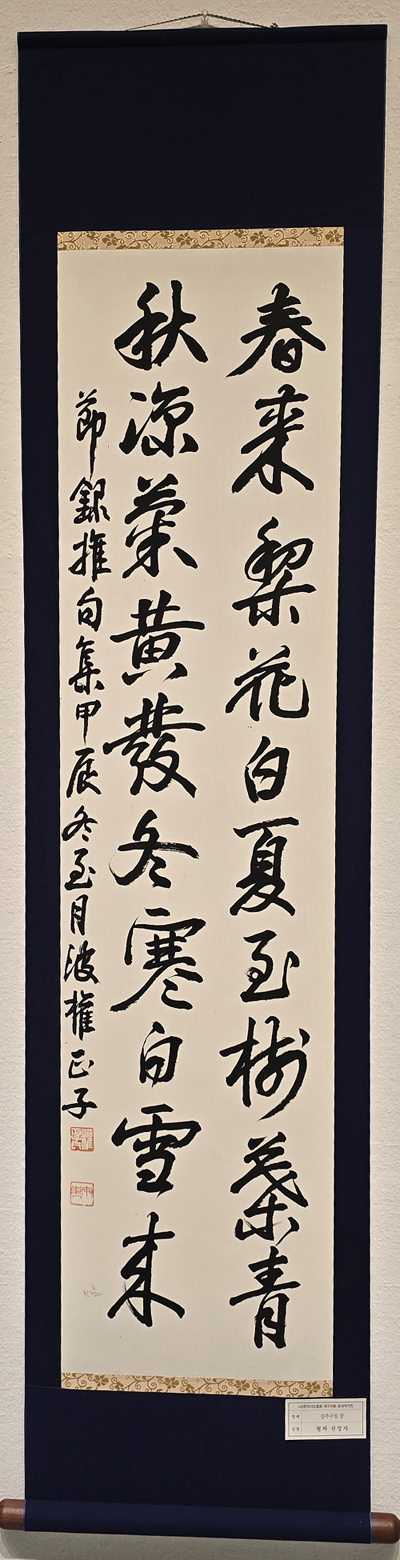 春来梨花白夏至樹葉青
秋凉菊黄發冬寒白雪来
節録推句集甲辰冬至月波權正子
월파 권정자